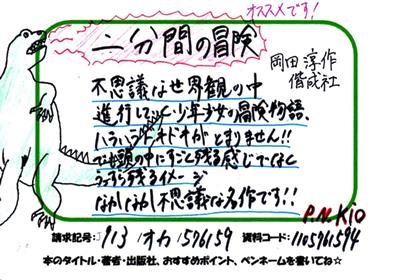 オススメです!
二分間の冒険
岡田 淳作
偕成社
不思議な世界観の中
進行していく少年少女の冒険物語、
ハラハラドキドキがとまりません!!
でも頭の中にすごく残る感じではなく
うっすら残るイメージ
なかなか不思議な名作です!!
P.N.Kio
請求記号:913 オカ 576159 資料コード:1105761594
本のタイトル・著者・出版社、おすすめポイント、ペンネームを書いてね☆